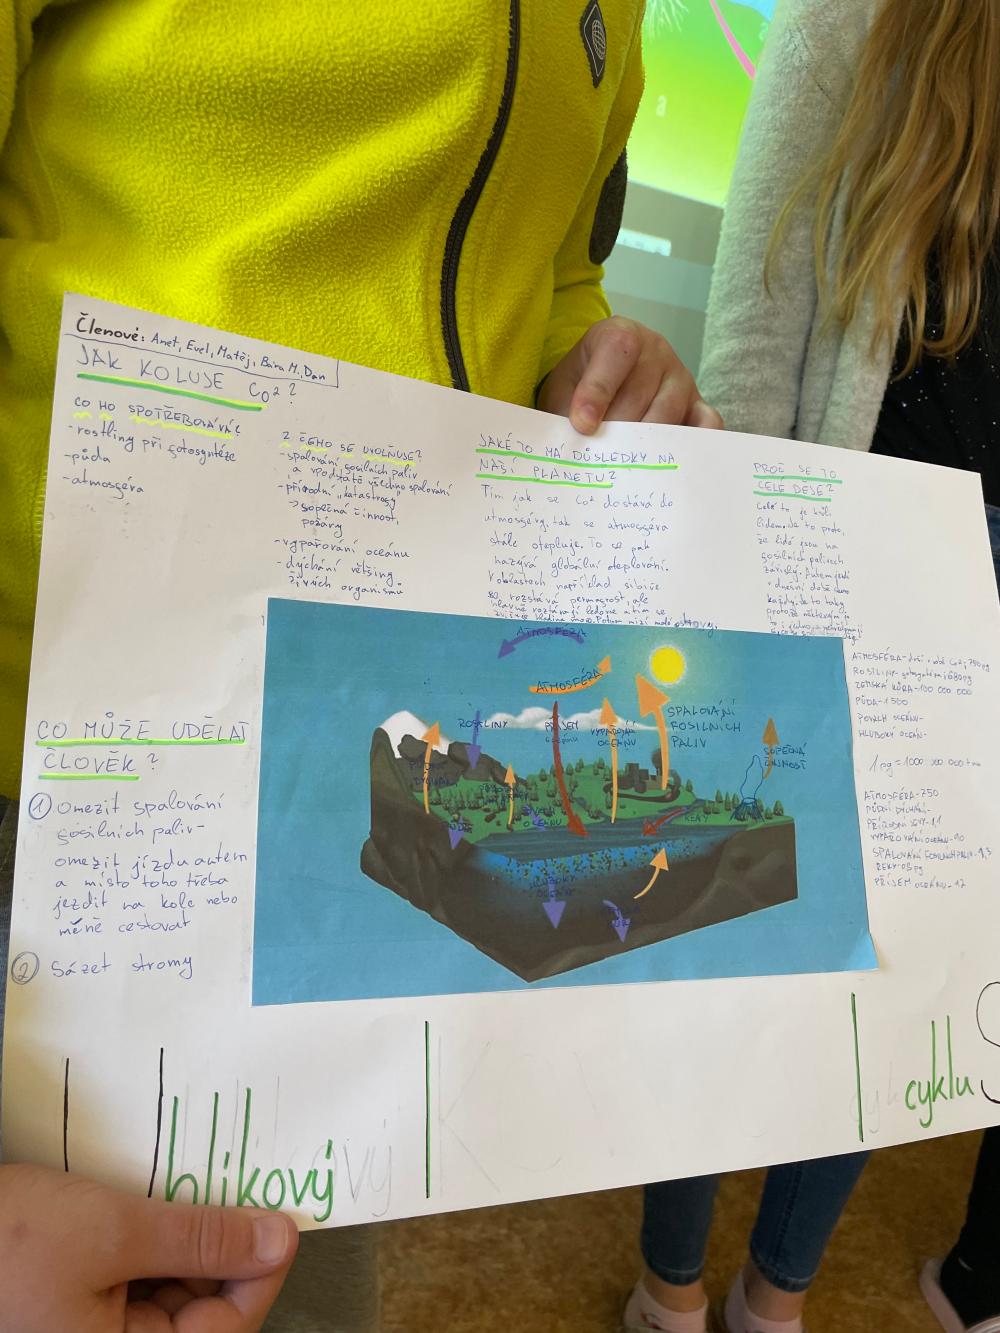 Členové: Anet, Evel, Matěj, Bára M., Dan
JAK KOLUJE CO²?
CO HO SPOTŘEBOVÁVÁ?
-rostliny při fotosyntéze
-půda
-atmosféra
Z ČEHO SE UVOLŇUJE?
-spalování fosilních paliv
a vpodstatě všechno spalování
-přírodní "katastrofy"
→ sopečná činnost,
požáry
-vypařování oceánu
-dýchání většiny
živých organismu
JAKÉ TO MÁ DŮSLEDKY NA
NAŠÍ PLANETU?
Tím jak se CO² dostává do
atmosféry, tak se atmosféra
stále otepluje. To se pak
nazývá globální oteplování.
V oblastech například sibiře
rozstává permafrost, ale
hlavně roztávají ledovce a tím se
Potom mizí malé ostrovy.
PROČ SE TO
CELÉ DĚJE?
Celé to je kvůli
lidem. Je to proto,
že lidé jsou na
fosilních palivech
závislý. Autem jezdí
v dnešní době skoro
každý. Je to taky
protože některým je
to jedno a
CO MŮŽE UDĚLAT
ČLOVĚK?
1 Omezit spalování
fosilních paliv-
omezit jízdu autem
a místo toho třeba
jezdit na kole nebo
méně cestovat
2 Sázet stromy
ATMOSFÉRA
ATMOSFÉRA
ROSTLINY
PŘÍJEM
OCEÁNU
VYPAŘOVÁNÍ
OCEÁNU
SPALOVÁNÍ
FOSILNÍCH
PALIV
SOPEČNÁ
ČINNOST
PŮDNÍ
DÝCHÁNÍ
PŮDA
POVRCH
OCEÁNU
ŘEKY
HLUBOKÝ
OCEÁN
ZEMSKÁ
KŮRA
ATMOSFÉRA- CO² 750 pg
ROSTLINY- fotosyntéza
ZEMSKÁ KŮRA-100 000 000
PŮDA-1500
POVRCH OCEÁNU-
HLUBOKÝ OCEÁN-
1 pg = 1000 000 000 tun
ATMOSFÉRA-750
PŮDNÍ DÝCHÁNÍ-
PŘÍRODNÍ JEVY-1,1
VYPAŘOVÁNÍ OCEÁNU-90
SPALOVÁNÍ FOSILNÍCH PALIV-
ŘEKY-
PŘÍJEM OCEÁNU-
Uhlíkový
cyklus